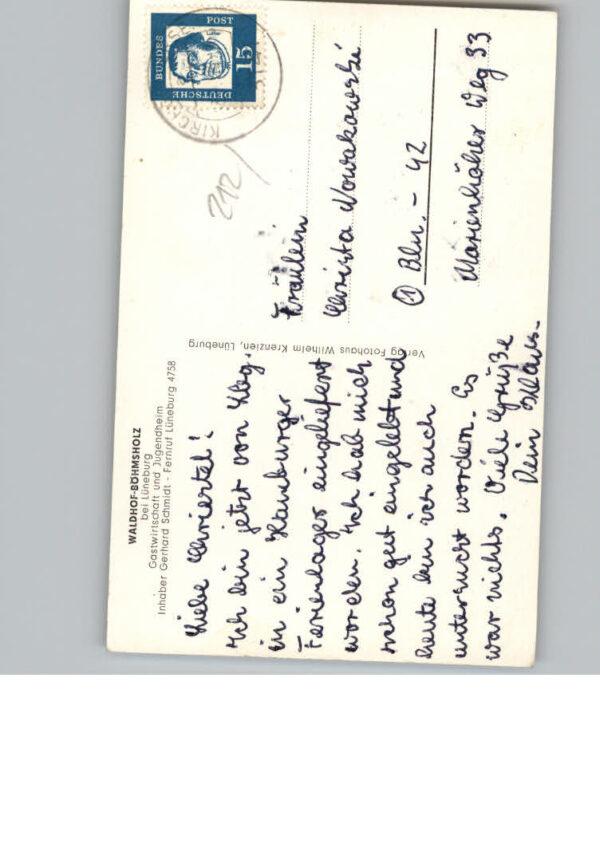 WALDHOF-BÖHMSHOLZ
bei Lüneburg
Gastwirtschaft und Jugendheim
Inhaber Gerhard Schmidt - Fernruf Lüneburg 4758
Liebe Christel!
Ich bin jetzt von Hbg.
in ein Hamburger
Ferienlager eingeliefert
worden. Ich hab mich
schon gut eingelebt und
heute bin ich auch
untersucht worden. Es
war nichts. Viele Grüße
Dein Klaus.
Verlag Fotohaus Wilhelm Krenzien, Lüneburg
DEUTSCHE
BUNDES
POST
15
KIRCH
212/
Fräulein
Christa Nowakowski
① Bln. - 42
Marienhöher Weg 33